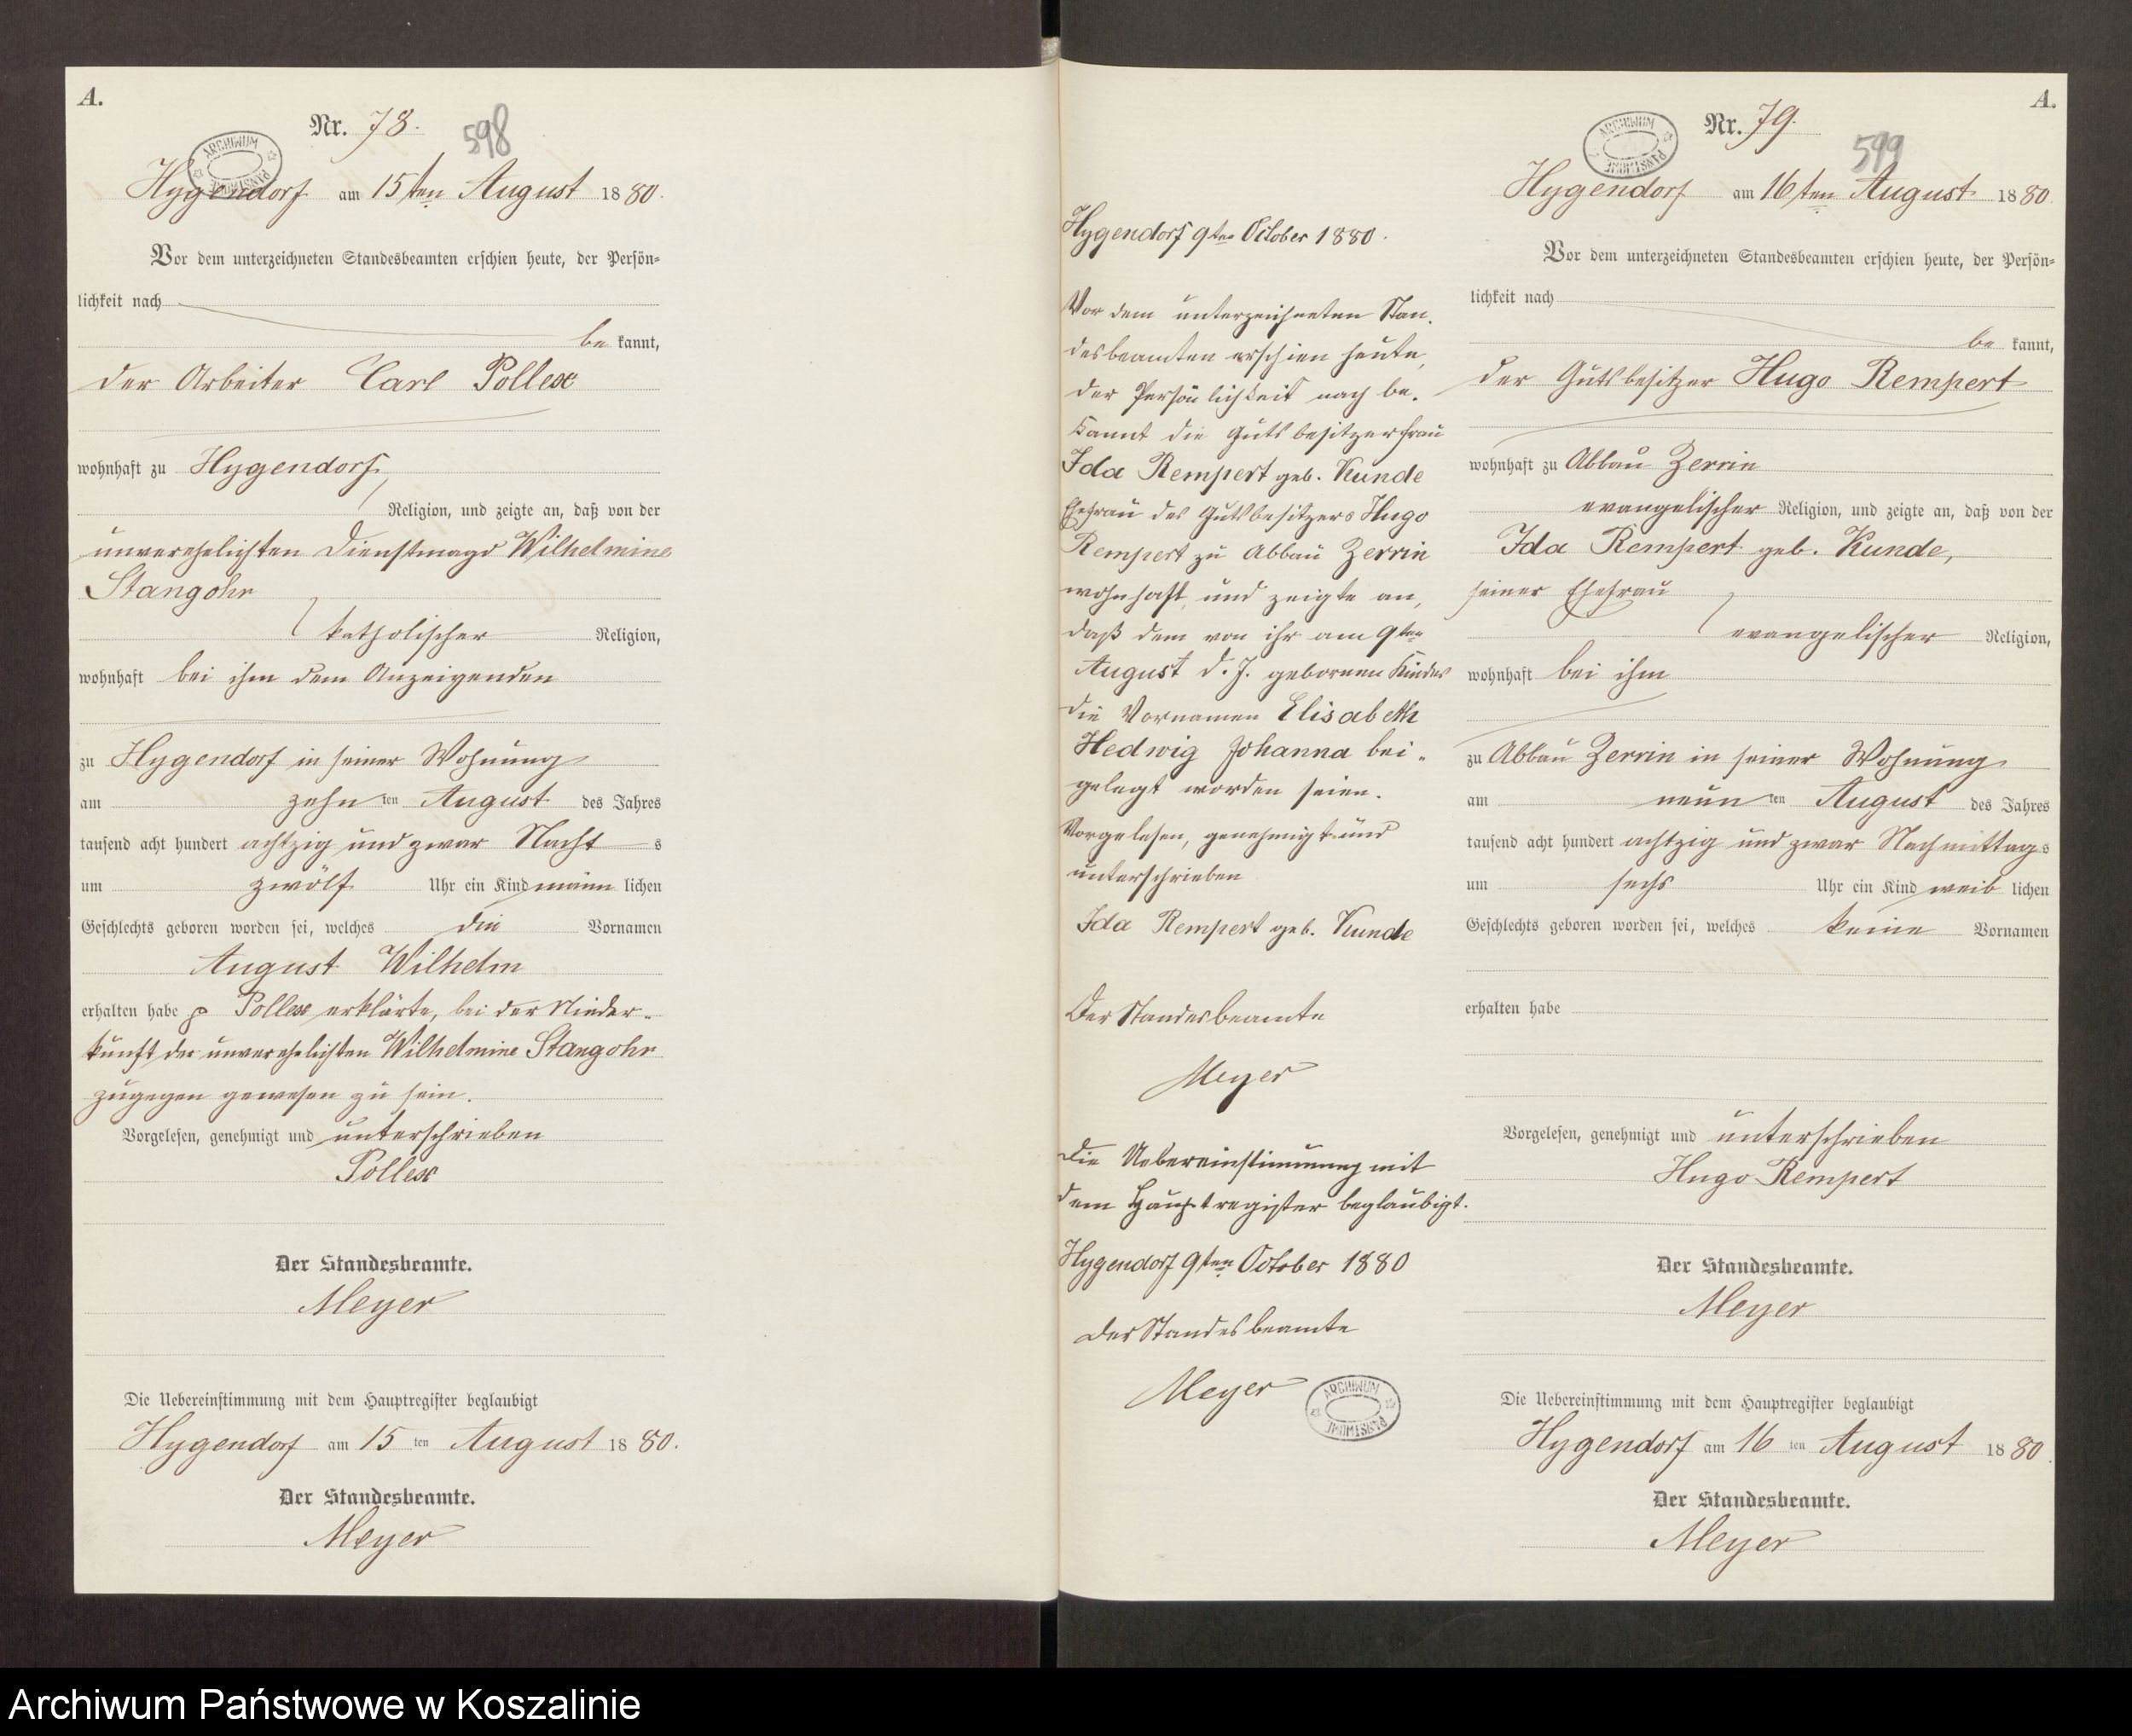 A.
Nr. 78.
598
ARCHIWUM PAŃSTWOWE
Hygendorf am 15ten August 1880.
Vor dem unterzeichneten Standesbeamten erschien heute, der Persön-
lichkeit nach
be kannt,
der Arbeiter Carl Pollex
wohnhaft zu Hygendorf
Religion, und zeigte an, daß von der
unverehelichten Dienstmagd Wilhelmine
Stangohr
katholischer Religion,
wohnhaft bei ihm dem Anzeigenden
zu Hygendorf in seiner Wohnung
am zehn ten August des Jahres
tausend acht hundert achtzig und zwar Nacht s
um zwölf Uhr ein Kind männ lichen
Geschlechts geboren worden sei, welches die Vornamen
August Wilhelm
erhalten habe p Pollex erklärte, bei der Nieder-
kunft der unverehelichten Wilhelmine Stangohr
zugegen gewesen zu sein.
Vorgelesen, genehmigt und unterschrieben
Pollex
Der Standesbeamte.
Meyer
Die Uebereinstimmung mit dem Hauptregister beglaubigt
Hygendorf am 15 ten August 1880.
Der Standesbeamte.
Meyer
Hygendorf 9ten October 1880.
Vor dem unterzeichneten Stan-
desbeamten erschien heute,
der Persönlichkeit nach be-
kannt die Gutsbesitzerfrau
Ida Rempert geb. Kunde
Ehefrau des Gutsbesitzers Hugo
Rempert zu Abbau Zerrin
wohnhaft, und zeigte an,
daß dem von ihr am 9ten
August d. J. gebornen Kinde
die Vornamen Elisabeth
Hedwig Johanna bei-
gelegt worden seien.
Vorgelesen, genehmigt und
unterschrieben
Ida Rempert geb. Kunde
Der Standesbeamte
Meyer
Die Uebereinstimmung mit
dem Hauptregister beglaubigt.
Hygendorf 9ten October 1880
Der Standesbeamte
Meyer
ARCHIWUM PAŃSTWOWE
A.
Nr. 79.
599
ARCHIWUM PAŃSTWOWE
Hygendorf am 16ten August 1880
Vor dem unterzeichneten Standesbeamten erschien heute, der Persön-
lichkeit nach
be kannt,
der Gutsbesitzer Hugo Rempert
wohnhaft zu Abbau Zerrin
evangelischer Religion, und zeigte an, daß von der
Ida Rempert geb. Kunde,
seiner Ehefrau
evangelischer Religion,
wohnhaft bei ihm
zu Abbau Zerrin in seiner Wohnung
am neun ten August des Jahres
tausend acht hundert achtzig und zwar Nachmittag s
um sechs Uhr ein Kind weib lichen
Geschlechts geboren worden sei, welches keine Vornamen
erhalten habe
Vorgelesen, genehmigt und unterschrieben
Hugo Rempert
Der Standesbeamte.
Meyer
Die Uebereinstimmung mit dem Hauptregister beglaubigt
Hygendorf am 16 ten August 1880.
Der Standesbeamte.
Meyer
Archiwum Państwowe w Koszalinie